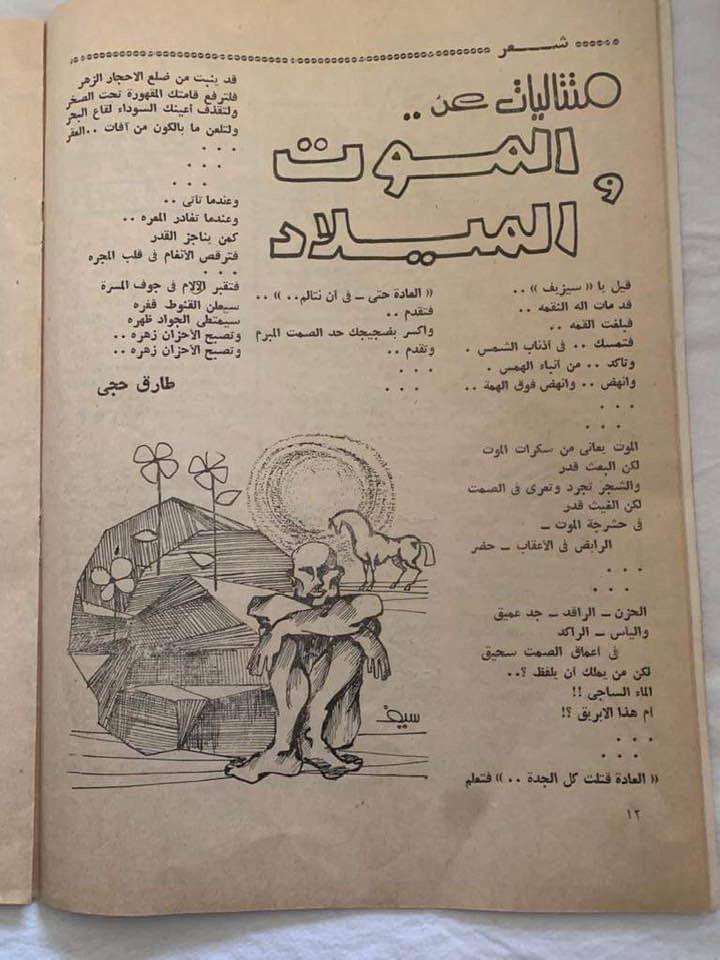 شعر
متتاليات عن ..
الموت
و
الميلاد
قيل يا « سيزيف » ..
قد مات اله النقمه ..
فبلغت القمه ..
فتمسك .. فى اذناب الشمس .
وتاكد .. من انباء الهمس .
وانهض .. وانهض فوق الهمة ..
. . .
. . .
الموت يعانى من سكرات الموت
لكن البعث قدر
والشجر تجرد وتعرى فى الصمت
لكن الغيث قدر
فى حشرجة الموت ــ
الرابض فى الأعقاب ــ حضر
. . .
. . .
الحزن ــ الراقد ــ جد عميق
والياس ــ الراكد
فى اعماق الصمت سحيق
لكن من يملك ان يلفظ ؟..
الماء الساجى !!
ام هذا الابريق ؟!
. . .
. . .
« العادة قتلت كل الجدة .. » فتعلم
« العادة حتى ــ فى ان نتالم.. » ..
فتقدم ..
واكسر بضجيجك حد الصمت المبرم
وتقدم ..
. . .
. . .
قد ينبت من ضلع الاحجار الزهر
فلترفع قامتك المقهورة تحت الصخر
ولتقذف أعينك السوداء لقاع البحر
ولتلعن ما بالكون من آفات ..العقر
. . .
. . .
. . .
وعندما تاتى ..
وعندما تغادر المعره ..
كمن يناجز القدر
فترقص الانغام فى قلب المجره
. . .
فتقبر الآلام فى جوف المسرة
سيعلن القنوط فقره
سيمتطى الجواد ظهره
وتصبح الأحزان زهره ..
وتصبح الأحزان زهره ..
طارق حجى
سيف
١٢